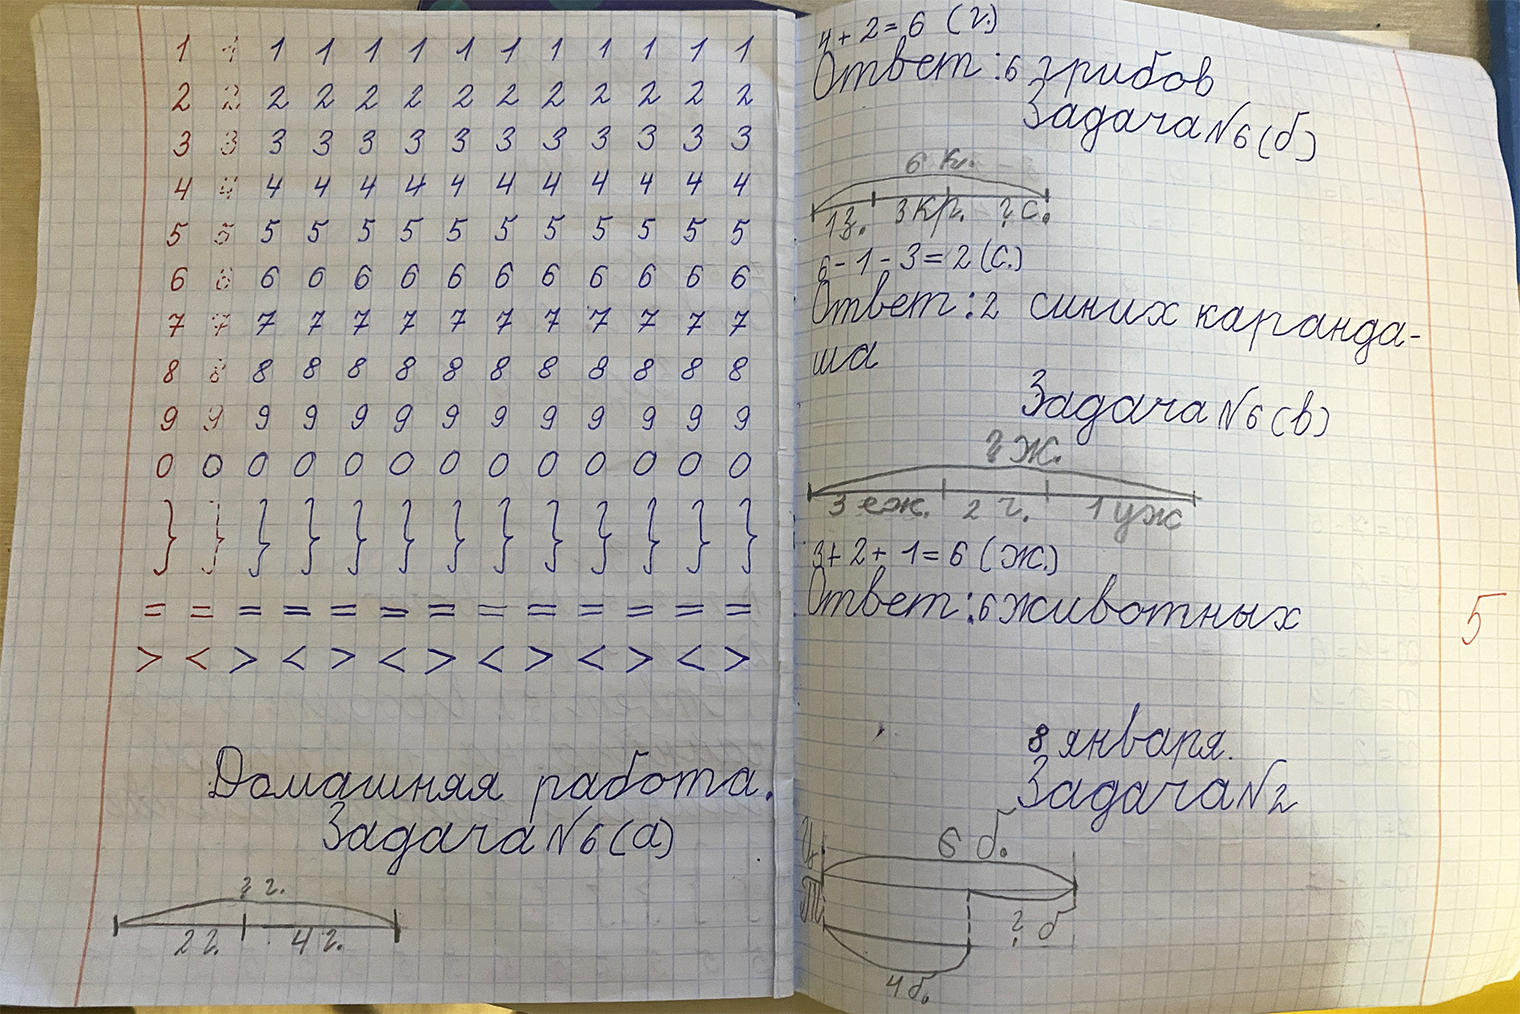 1 1 1 1 1 1 1 1 1 1 1 1 1
2 2 2 2 2 2 2 2 2 2 2 2 2
3 3 3 3 3 3 3 3 3 3 3 3 3
4 4 4 4 4 4 4 4 4 4 4 4 4
5 5 5 5 5 5 5 5 5 5 5 5 5
6 6 6 6 6 6 6 6 6 6 6 6 6
7 7 7 7 7 7 7 7 7 7 7 7 7
8 8 8 8 8 8 8 8 8 8 8 8 8
9 9 9 9 9 9 9 9 9 9 9 9 9
0 0 0 0 0 0 0 0 0 0 0 0 0
} } } } } } } } } } } } }
= = = = = = = = = = = = =
> < > < > < > < > < > < >
Домашняя работа.
Задача №6(а)
? г.
2 г. 4 г.
4+2=6 (г.)
Ответ: 6 грибов
Задача №6(б)
6 к.
1з. 3кр. ?с.
6-1-3=2(с.)
Ответ: 2 синих каранда-
ша
Задача №6(в)
? ж.
3 еж. 2 ч. 1 уж
3+2+1=6 (ж.)
Ответ: 6 животных
5
8 января.
Задача №2
6 б.
? б
4 б.